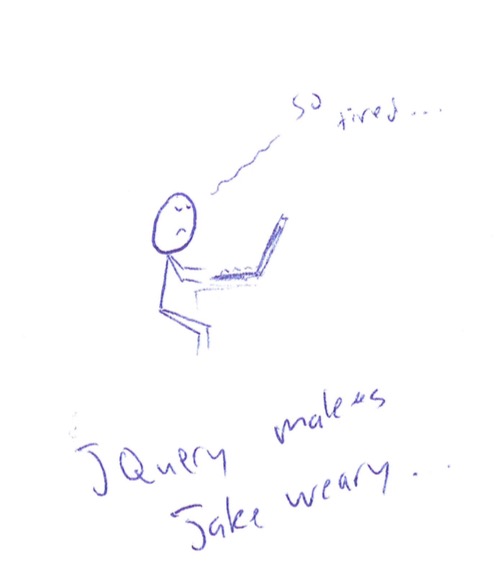 so tired...
JQuery makes
Jake weary...